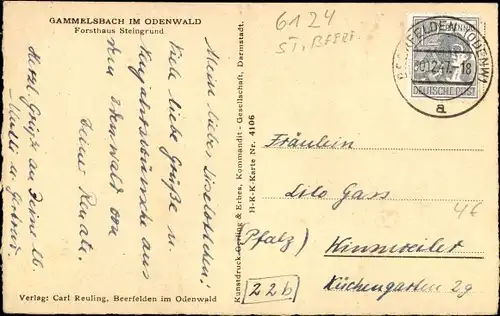 GAMMELSBACH IM ODENWALD
Forsthaus Steingrund
Meine liebe Liselottchen!
Viele liebe Grüße u.
Neujahrswünsche aus
dem Odenwald von
Deiner Renate.
Herzl. Grüße an Deine lb.
Mutti u.
Verlag: Carl Reuling, Beerfelden im Odenwald
Kunstdruck Gerling & Erbes, Kommandit-Gesellschaft, Darmstadt.
H-K-K-Karte Nr. 4106
6124
ST. BEERF.
BEERFELDEN (ODENW)
30.12.47.-18
a
DEUTSCHE POST
Fräulein
Lilo Gass
(Pfalz) Winnweiler
Küchengarten 2g
22b
4€